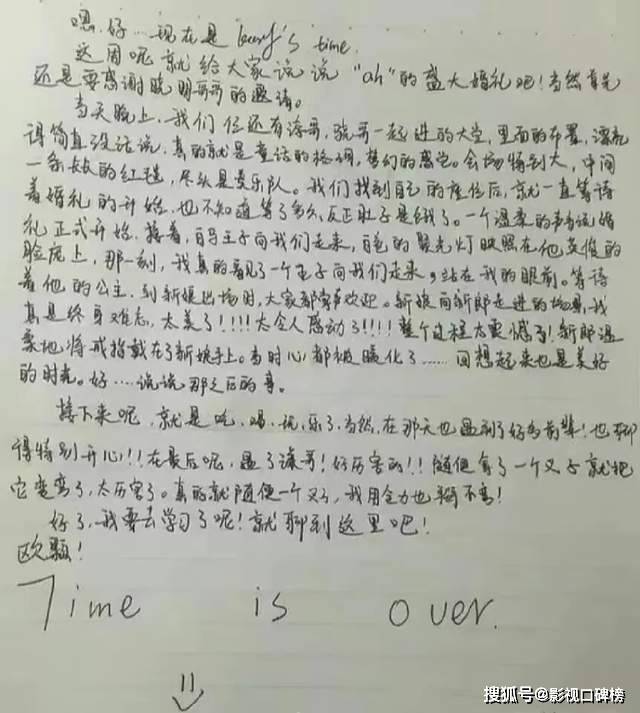 嗯,好……现在是 karry's time.
这周呢就给大家说说"ah"的盛大婚礼吧!当然首先
还是要感谢晓明哥哥的邀请。
当天晚上,我们仨还有涛哥,骁哥一起进的大堂,里面的布置,漂亮
得简直没话说,真的就是童话的格调,梦幻的感觉。会场特别大,中间
一条长长的红毯,尽头是音乐队。我们找到自己的座位后,就一直等待
着婚礼的开始,也不知道等了多久,反正肚子是饿了。一个温柔的声音说婚
礼正式开始,接着,白马王子向我们走来,白色的聚光灯映照在他英俊的
脸庞上,那一刻,我真的看见了一个王子向我们走来,站在我的眼前。等待
着他的公主,到新娘出场时,大家都掌声欢迎。新娘向新郎走进的场景,我
真是终身难忘,太美了!!!!太令人感动了!!!!整个过程太震撼了!新郎温
柔地将戒指戴在了新娘手上。当时心都被暖化了……回想起来也是美好
的时光。好……说说那之后的事。
接下来呢,就是吃、喝、玩、乐了,当然,在那天也遇到了好多前辈!也聊
得特别开心!!在最后呢,遇了涛哥!好厉害的!!随便拿了一个叉子就把
它变弯了,太厉害了。真的就随便一个叉子,我用全力也掰不弯!
好了,我要去学习了呢!就聊到这里吧!
欧颗!
Time is over.
搜狐号@影视口碑榜